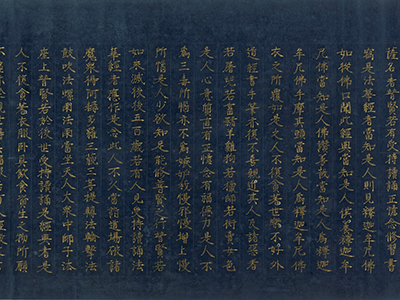 薩名者普賢若有受持讀誦正憶念修習書
寫是法華經者當知是人則見釋迦牟尼佛
如從佛口聞此經典當知是人供養釋迦牟
尼佛當知是人佛讚善哉當知是人為釋迦
牟尼佛手摩其頭當知是人為釋迦牟尼佛
衣之所覆如是之人不復貪著世樂不好外
道經書手筆亦復不喜親近其人及諸惡者
若屠兒若畜猪羊雞狗若獵師若衒賣女色
是人心意質直有正憶念有福德力是人不
為三毒所惱亦不為嫉妬我慢邪慢增上慢
所惱是人少欲知足能修普賢之行普賢若
如來滅後後五百歲若有人見受持讀誦法
華經者應作是念此人不久當詣道場破諸
魔衆得阿耨多羅三藐三菩提轉法輪擊法
鼓吹法螺雨法雨當坐天人大衆中師子法
座上普賢若於後世受持讀誦是經典者是
人不復貪著衣服臥具飲食資生之物所願